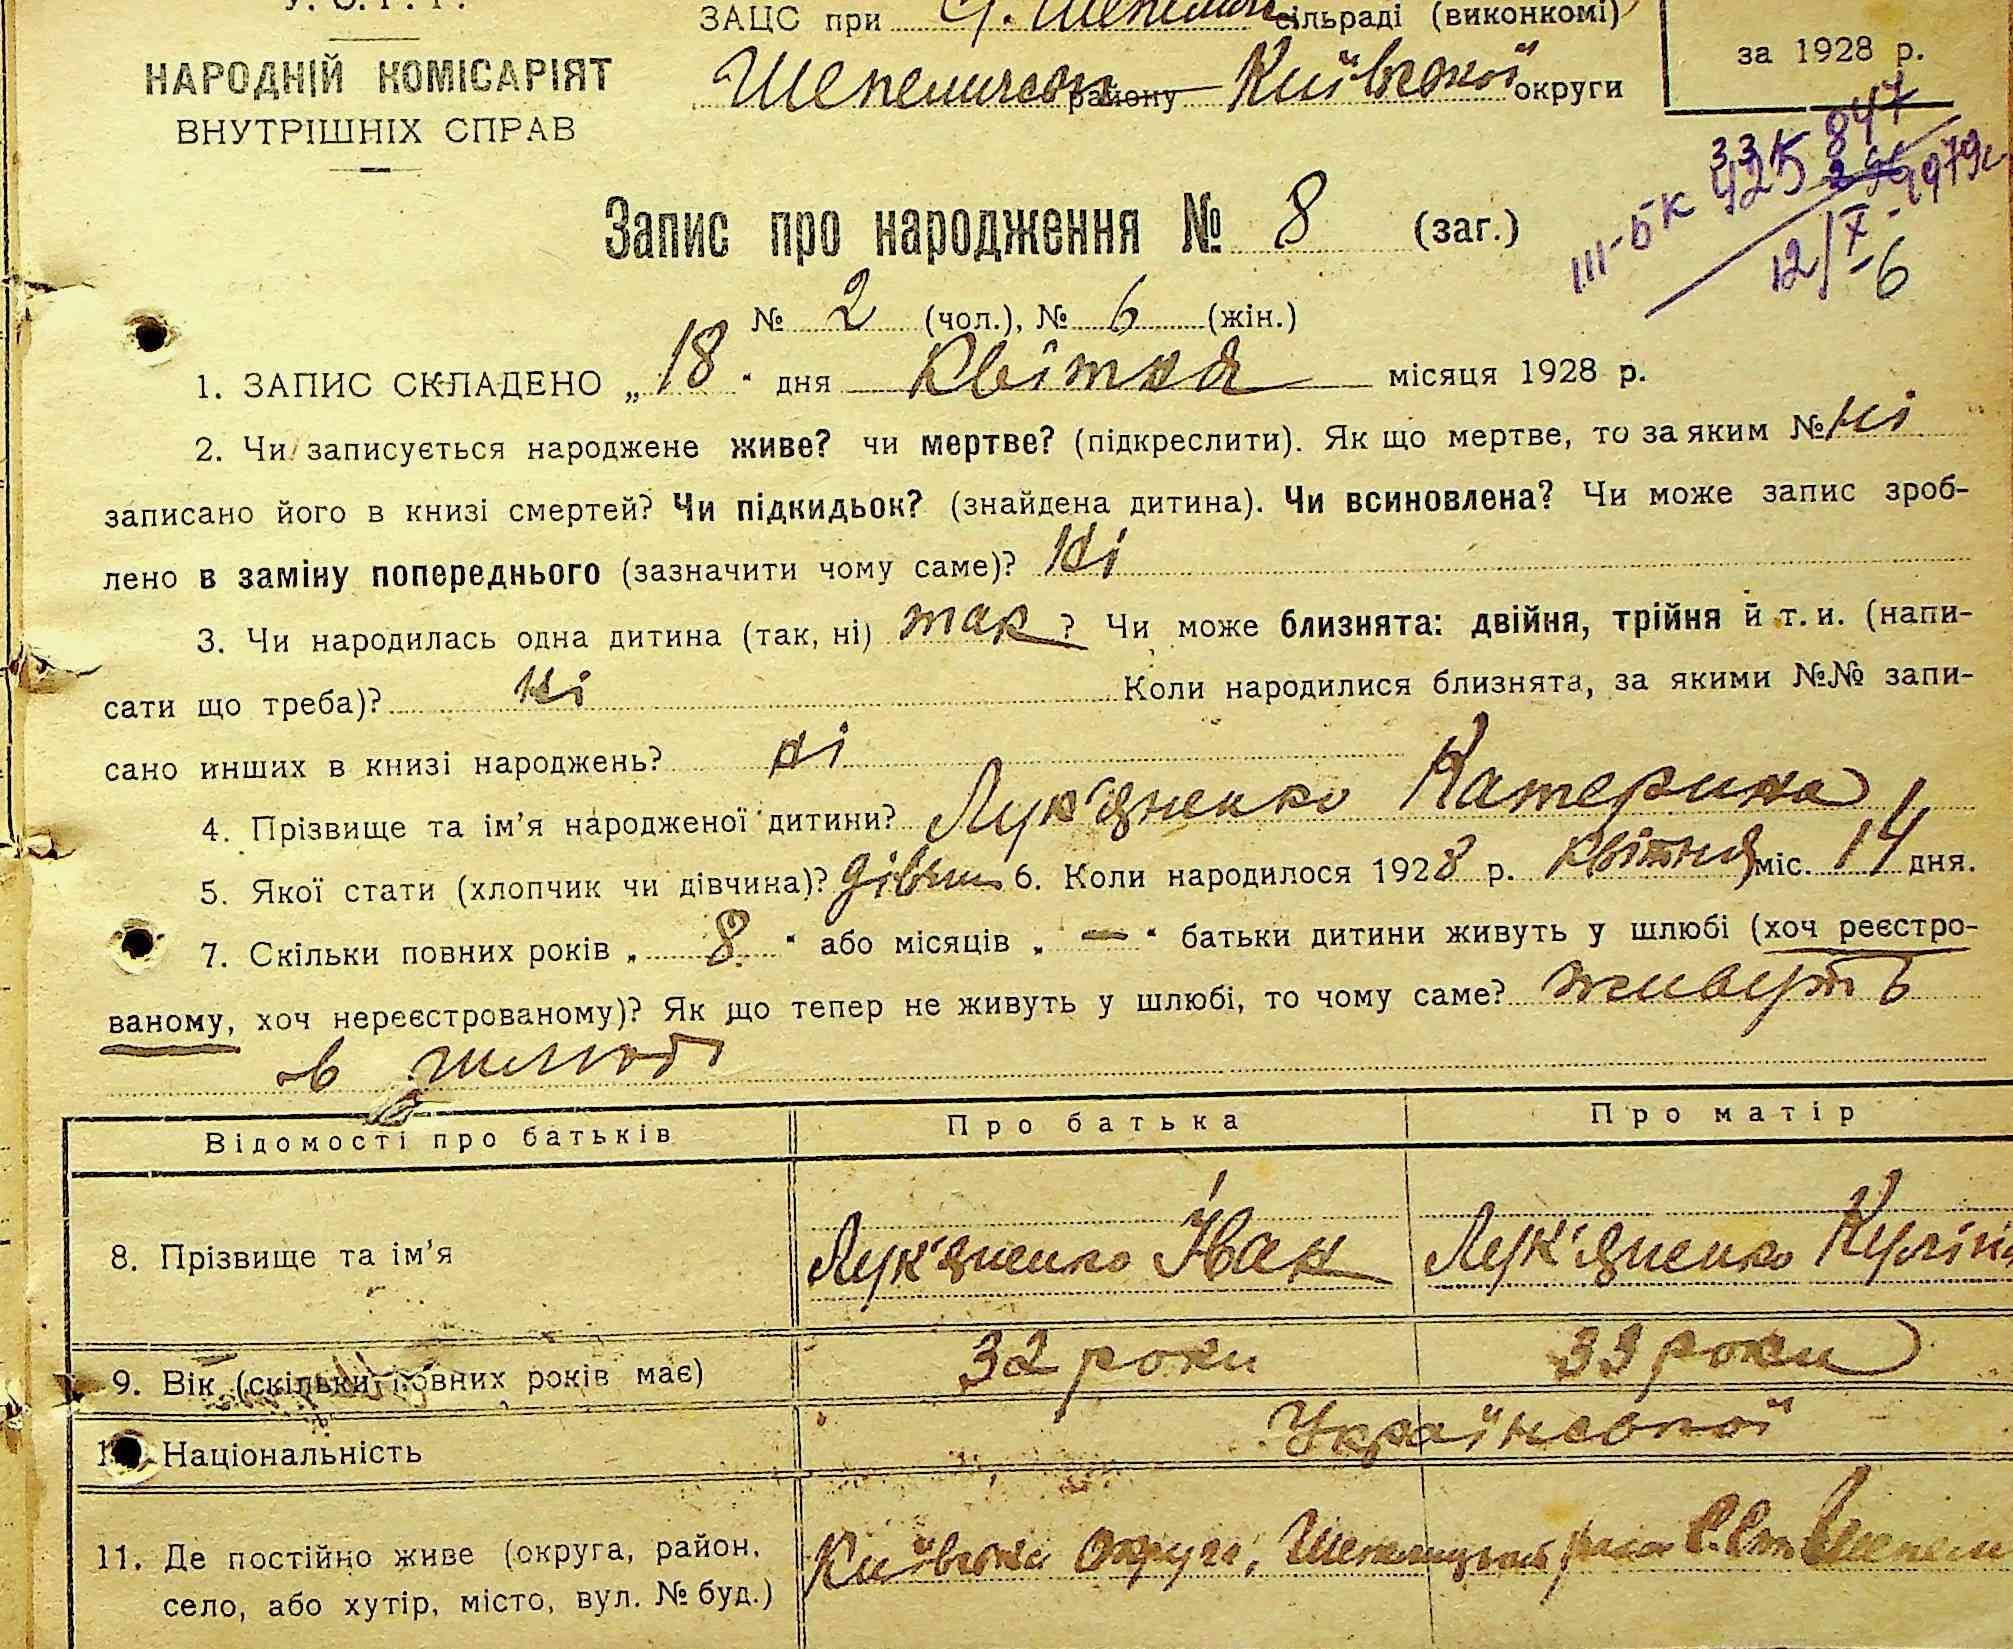 У. С. Р. Р.
ЗАЦС при сільраді (виконкомі)
за 1928 р.
НАРОДНІЙ КОМІСАРІЯТ
ВНУТРІШНІХ СПРАВ
району Київської округи
III-БК 425 847
1979
12/X - 6
Запис про народження № 8 (заг.)
№ 2 (чол.), № 6 (жін.)
1. ЗАПИС СКЛАДЕНО „18" дня Квітня місяця 1928 р.
2. Чи записується народжене живе? чи мертве? (підкреслити). Як що мертве, то за яким № ні
записано його в книзі смертей? Чи підкидьок? (знайдена дитина). Чи всиновлена? Чи може запис зроб-
лено в заміну попереднього (зазначити чому саме)? Ні
3. Чи народилась одна дитина (так, ні) так? Чи може близнята: двійня, трійня й т. и. (напи-
сати що треба)? Ні Коли народилися близнята, за якими №№ запи-
сано инших в книзі народжень? ні
4. Прізвище та ім'я народженої дитини? Лук'яненко Катерина
5. Якої стати (хлопчик чи дівчина)? дівчин 6. Коли народилося 1928 р. квітня міс. 14 дня.
7. Скільки повних років „ 8 " або місяців „ — " батьки дитини живуть у шлюбі (хоч реєстро-
ваному, хоч нереєстрованому)? Як що тепер не живуть у шлюбі, то чому саме? живуть
в шлюбі
Відомості про батьків Про батька Про матір
8. Прізвище та ім'я Лук'яненко Іван Лук'яненко
9. Вік (скільки повних років має) 32 роки 33 роки
Національність Української
11. Де постійно живе (округа, район, Київська округа,
село, або хутір, місто, вул. № буд.)